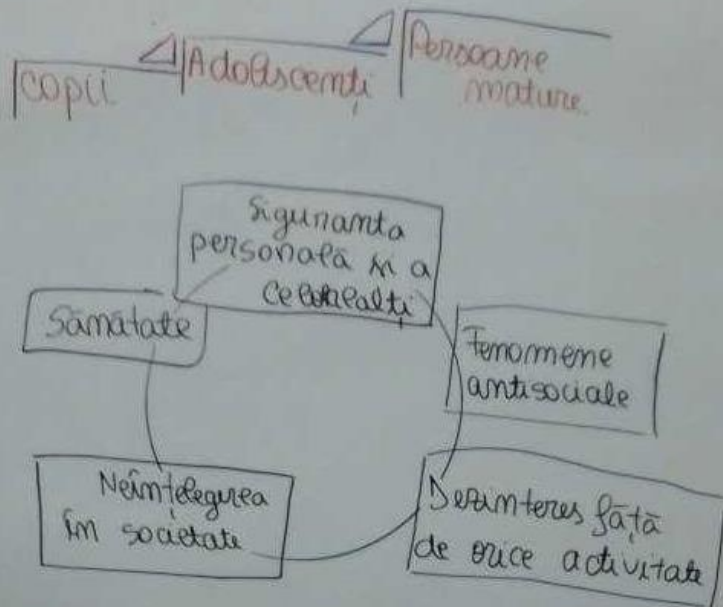 Copii
Adolescenți
Persoane
mature.
Siguranta
personală și a
celorlalți
Sămătate
Fenomene
antisociale
Neințelegerea
în societate
Dezinteres față
de orice activitate